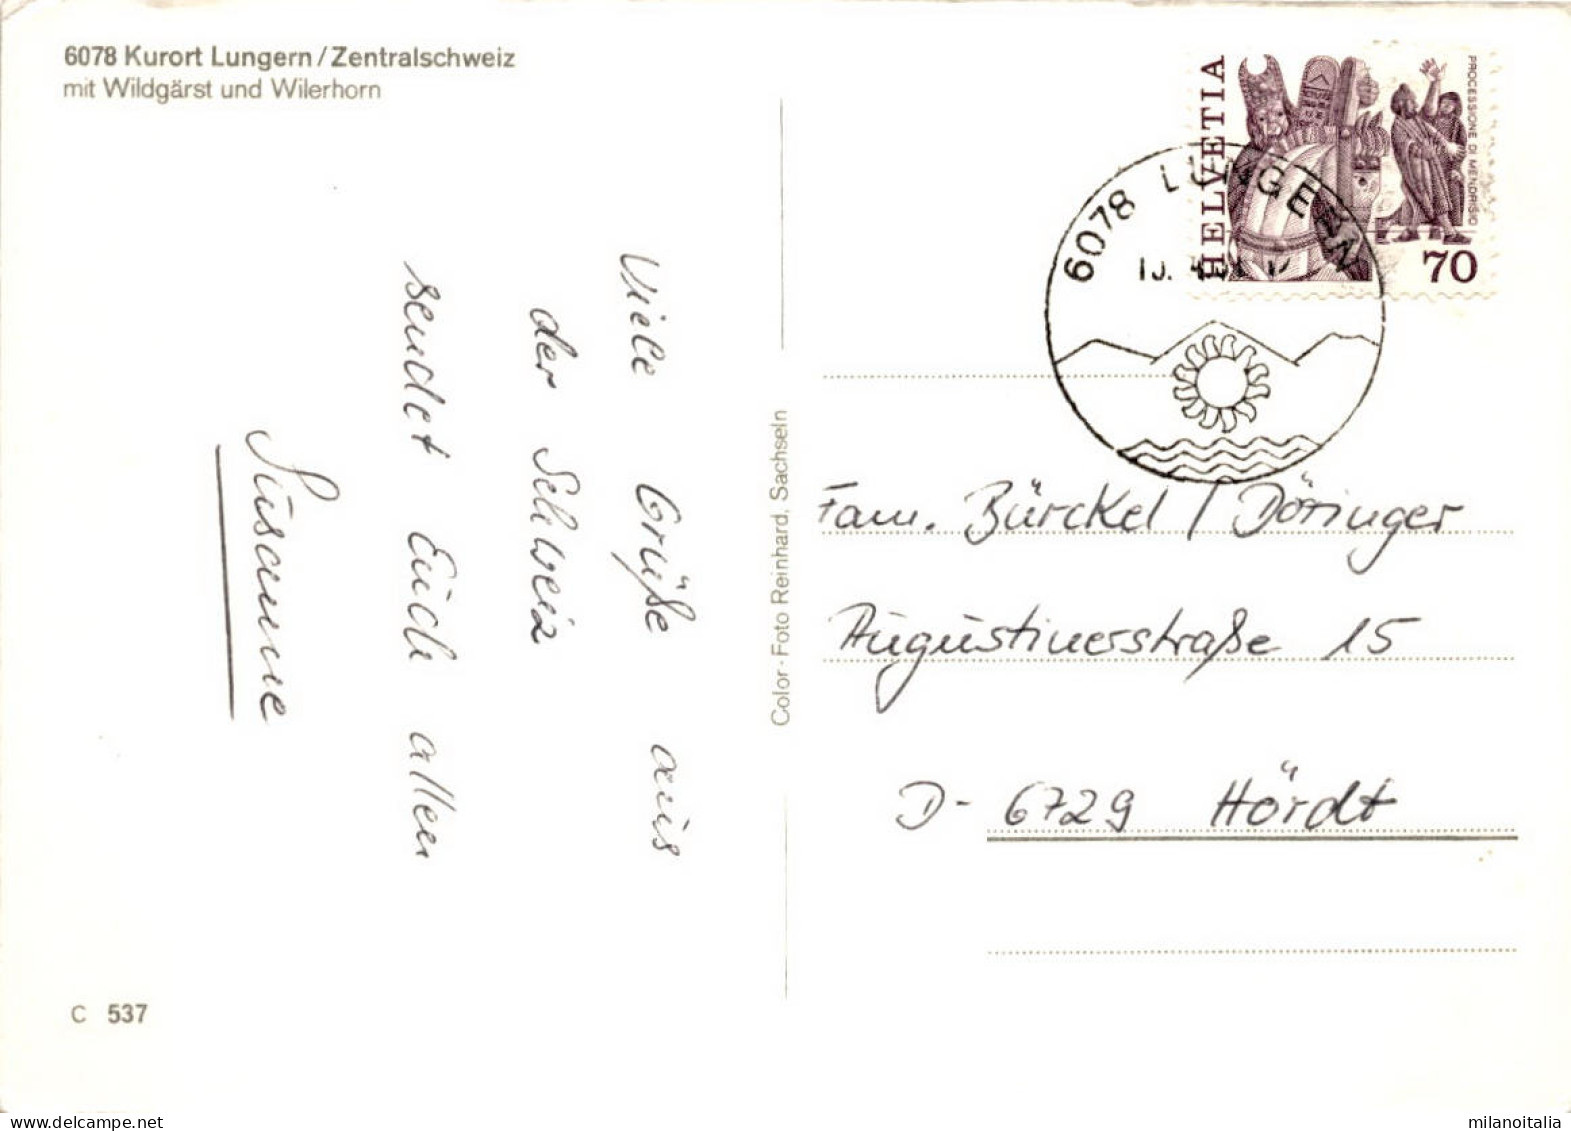 6078 Kurort Lungern/Zentralschweiz
mit Wildgärst und Wilerhorn
Viele Grüße aus
der Schweiz
sendet Euch allen
Susanne
C 537
Color-Foto Reinhard, Sachseln
HELVETIA
PROCESSIONE DI MENDRISIO
70
6078 LUNGERN
Fam. Bürckel / Döringer
Augustinerstraße 15
D-6729 Hördt
milanoitalia